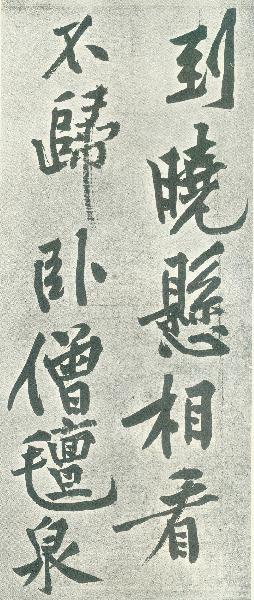 到曉懸相看
不歸卧僧氊泉